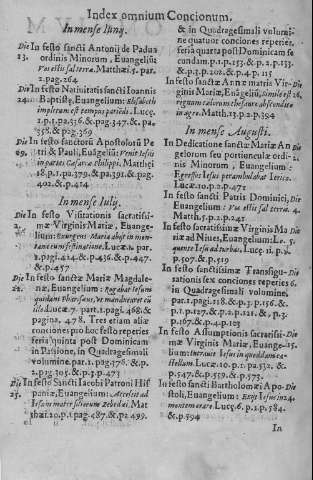 Index omnium Concionum.
In mense Iunij.
Die In festo sancti Antonij de Padua
13. ordinis Minorum, Euangelium
Vos estis sal terræ. Matthæi. 5. par.
2. pag. 264
Die In festo Natiuitatis sancti Ioannis
24. Baptistæ, Euangelium: Elisabeth
impletum est tempus pariendi. Luc.
1. p. 1. pa. 336. & pag. 347. & pa.
358. & pag. 369
Die In festo sanctorū Apostolorū Pe
tri & Pauli, Euāgeliū: Venit Iesus
in partes Cæsareæ Philippi. Matthæi
18. p. 1. pa. 379. & pa. 391. & pag.
402. & p. 414
In mense Iulij.
In festo Visitationis sacratissi-
mæ Virginis Mariæ, Euange-
lium: Exurgens Maria abijt in mon-
tana cum festinatione. Lucæ. 1. par.
2. pagi. 424. & p. 436. & p. 447.
& p. 457
Die In festo sanctæ Mariæ Magdale-
22. næ, Euangelium: Rogabat Iesum
quidam Pharisæus, vt manducaret cū
illo. Lucæ 7. part. 1. pagi. 468. &
pagina, 478. Tres etiam aliæ
conciones pro hoc festo reperies
feria quinta post Dominicam
in Passione, in Quadragesimali
volumine. par. 1. pag. 376. & p.
2. pag. 305. & p. 3. p. 473
Die In festo Sancti Iacobi Patroni His
25. paniæ, Euangelium: Accessit ad
Iesum mater filiorum Zebedæi. Mat
thæi. 20. p. 1. pag. 487. & p. 2. 499.
& in Quadragesimali volumi-
ne quatuor conciones reperies,
feria quarta post Dominicam se
cundam. p. 1. p. 153. & p. 2. p. 133.
& p. 3. p. 202. & p. 4. p. 115
In festo sanctæ Annæ matris Vir- Die
ginis Mariæ, Euāgeliū, simile est 26.
regnum cælorum thesauro abscondito
in agro. Matth. 13. p. 2. p. 394
In mense Augusti.
In Dedicatione sanctæ Mariæ An Die
gelorum seu portiunculæ ordi-
nis Minorum, Euangelium:
Egressus Iesus perambulabat Ierico.
Lucæ. 10. p. 2. p. 471
In festo sancti Patris Dominici, Die
Euangelium: Vos estis sal terræ. 4.
Matth. 5. p. 2. p. 241
In festo sacratissimæ Virginis Ma Die
riæ ad Niues, Euangelium: Lo- 5.
quente Iesu ad turbas. Luc. 11. p. 9.
p. 507. & p. 519
In festo sanctissimæ Transfigu- Die
rationis sex conciones reperies 6.
in Quadragesimali volumine,
par. 1. pagi. 118. & p. 3. p. 156. &
p. 1. p. 127. & p. 2. p. 109. & p. 3.
p. 167. & p. 4. p. 103
In festo Assumptionis sacratissi- Die
mæ Virginis Mariæ, Euange- 15.
lium: Intrauit Iesus in quoddam ca-
stellum. Lucæ. 10. p. 1. p. 532. &
p. 547. & p. 559. & p. 573.
In festo sancti Bartholomæi Apo- Die
stoli, Euangelium: Exijt Iesus in 24.
montem orare. Luc. 6. p. 1. p. 584.
& p. 594
In